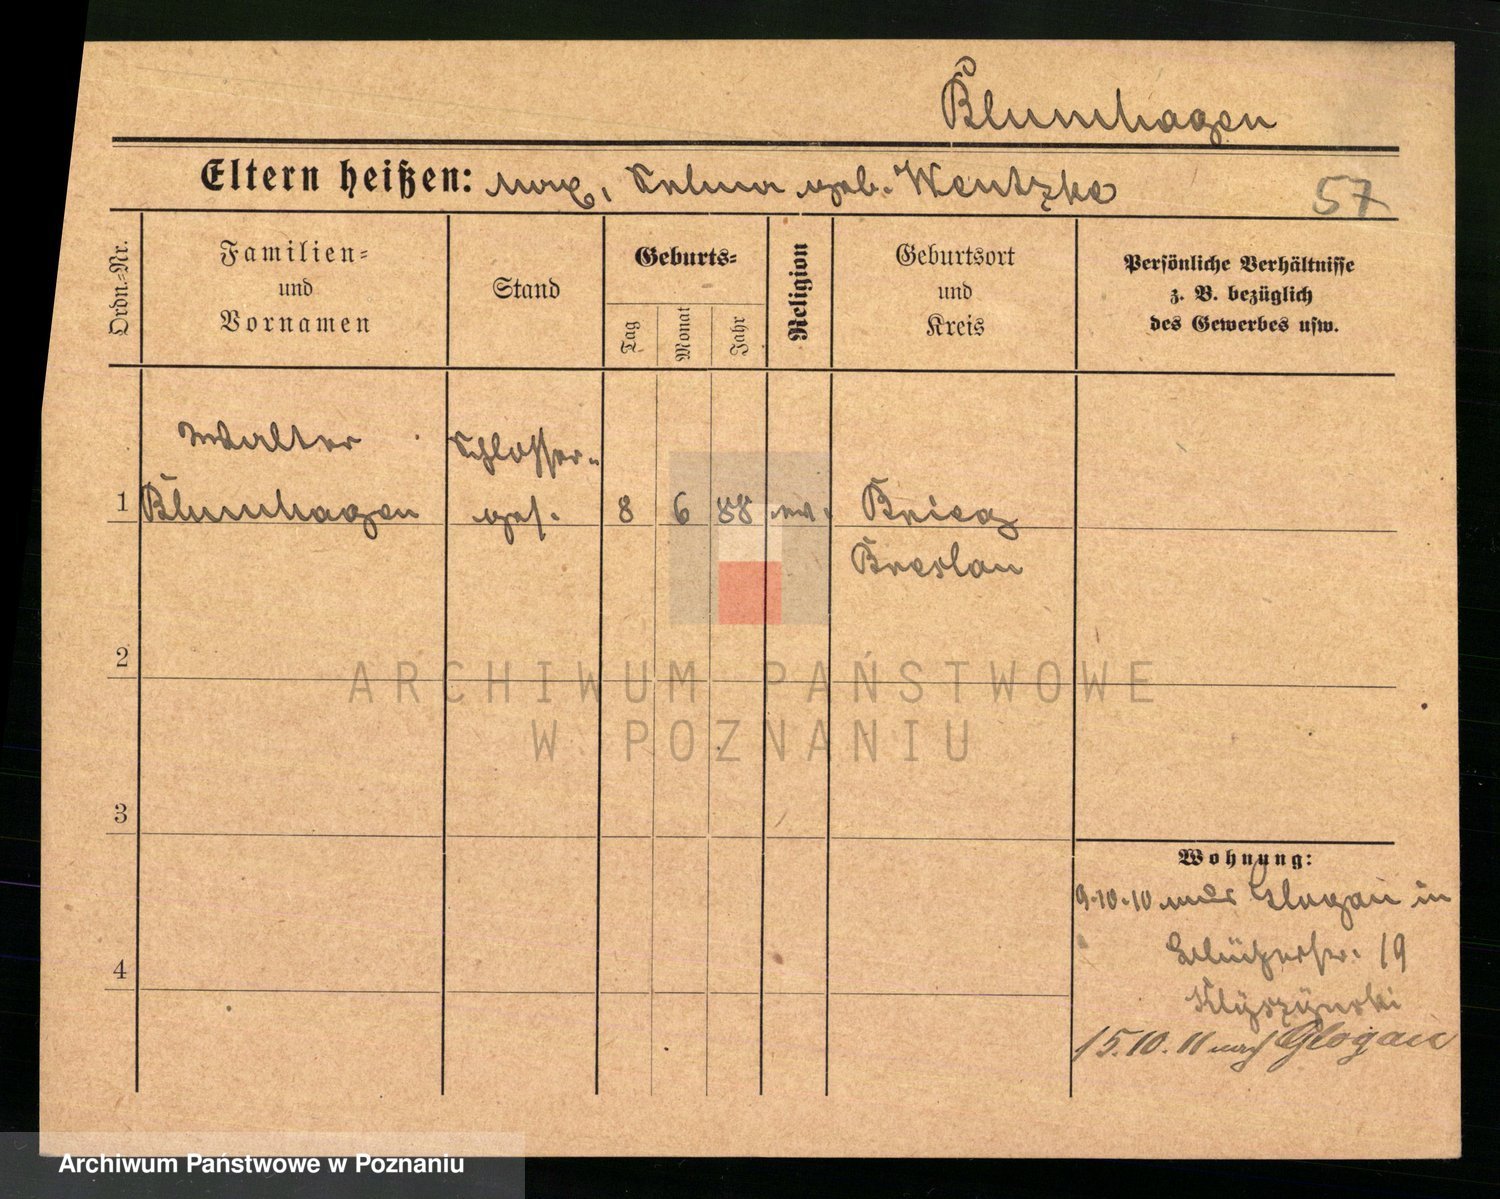 Blumhagen
Eltern heißen: Max, Selma geb. Wentzke
57
Ordn.=Nr.
Familien=
und
Vornamen
Stand
Geburts=
Tag
Monat
Jahr
Religion
Geburtsort
und
Kreis
Persönliche Verhältnisse
z. B. bezüglich
des Gewerbes usw.
Walter
Schlosser-
1 Blumhagen ges. 8 6 88 ev. Brieg
Breslau
2
3
4
ARCHIWUM PAŃSTWOWE
W POZNANIU
Wohnung:
9.10.10 aus Glogau in
19
15.10.11 nach Glogau
Archiwum Państwowe w Poznaniu